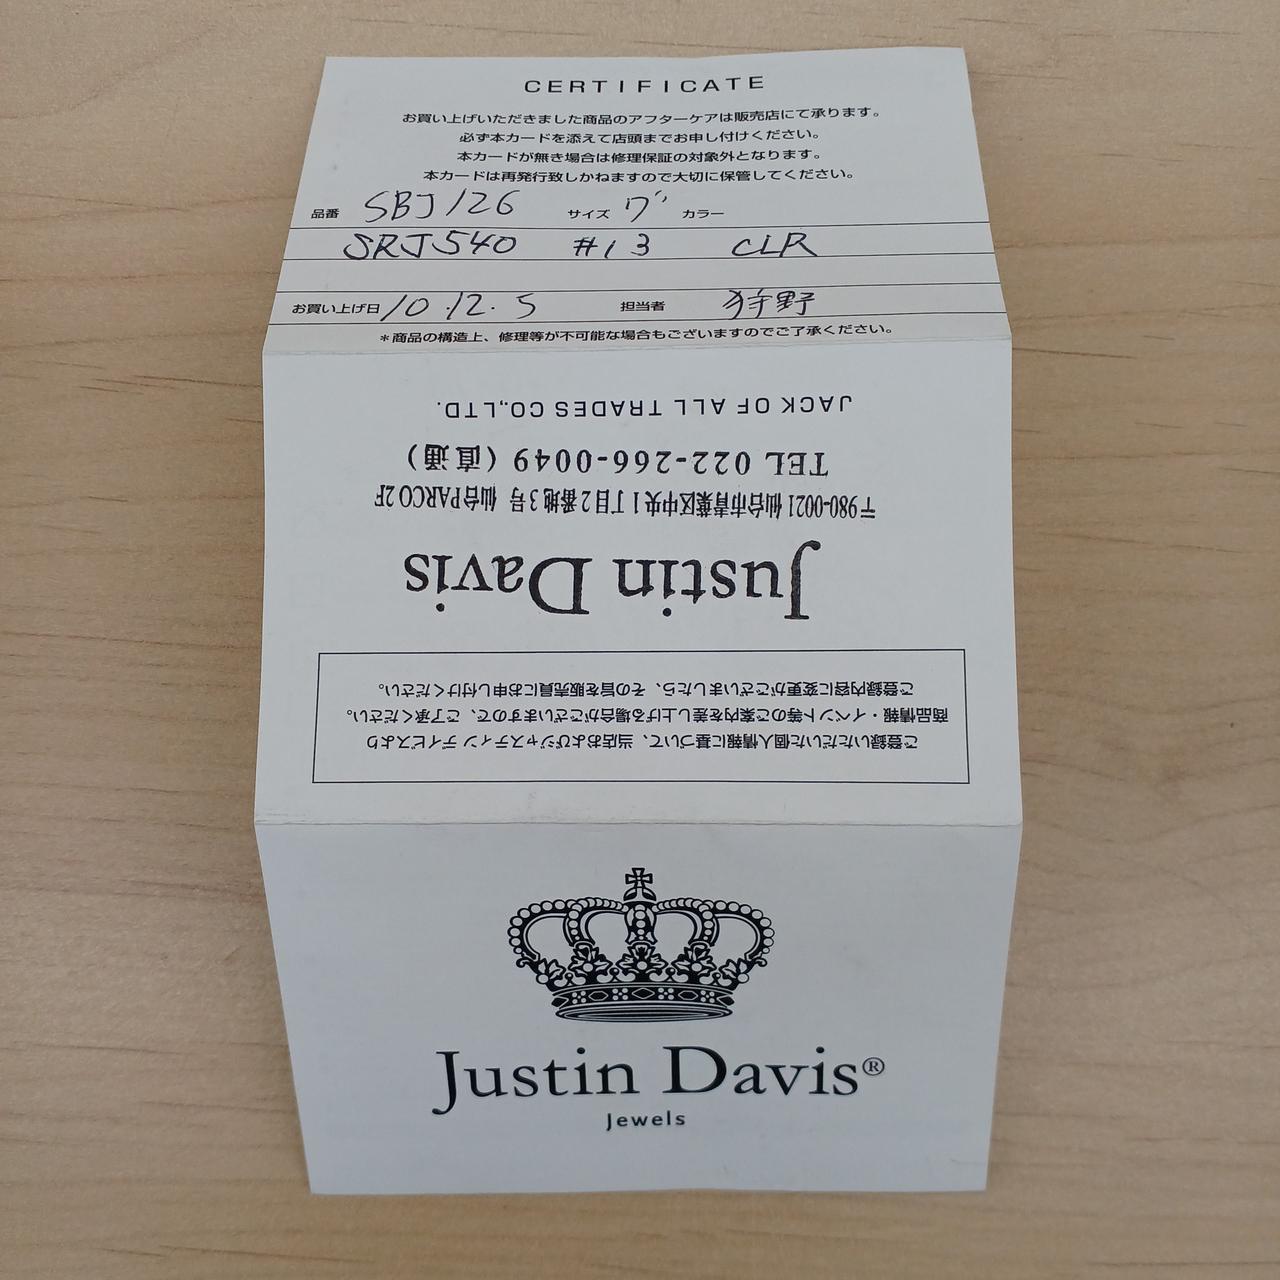 CERTIFICATE
お買い上げいただきました商品のアフターケアは販売店にて承ります。
必ず本カードを添えて店頭までお申し付けください。
本カードが無き場合は修理保証の対象外となります。
本カードは再発行致しかねますので大切に保管してください。
品番 SBJ126 サイズ 7" カラー
SRJ540 #13 CLR
お買い上げ日 10.12.5 担当者 狩野
＊商品の構造上、修理等が不可能な場合もございますのでご了承ください。
ご登録いただいた個人情報に基づいて、当店およびジャスティン デイビスより
商品情報・イベント等のご案内を差し上げる場合がございますので、ご了承ください。
ご登録内容に変更がございましたら、その旨を販売員にお申し付けください。
Justin Davis
〒980-0021 仙台市青葉区中央1丁目2番地3号 仙台PARCO 2F
TEL 022-266-0049 (直通)
JACK OF ALL TRADES CO.,LTD.
Justin Davis®
Jewels